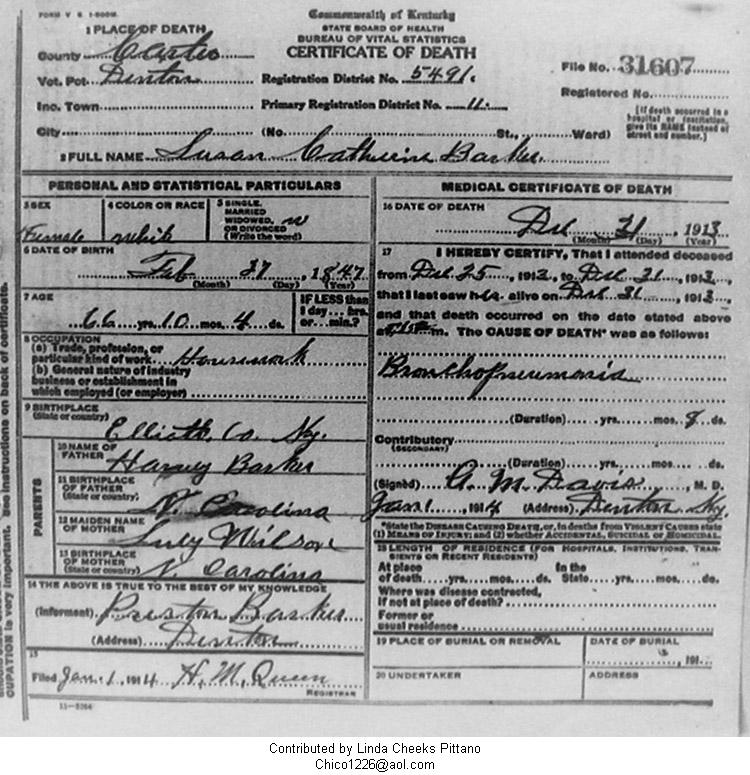 FORM V. S. 1-500M.
Commonwealth of Kentucky
STATE BOARD OF HEALTH
BUREAU OF VITAL STATISTICS
CERTIFICATE OF DEATH
1 PLACE OF DEATH
County Carter
Vot. Pct. Denton
Inc. Town
City (No. St., Ward)
Registration District No. 5491
Primary Registration District No. 11
File No. 31607
Registered No.
[If death occurred in a hospital or institution, give its NAME instead of street and number.]
2 FULL NAME Susan Catherine Barker
PERSONAL AND STATISTICAL PARTICULARS
3 SEX
Female
4 COLOR OR RACE
white
5 SINGLE, MARRIED WIDOWED, OR DIVORCED (Write the word) w
6 DATE OF BIRTH
Feb 27, 1847
(Month) (Day) (Year)
7 AGE
66 yrs. 10 mos. 4 ds.
IF LESS than 1 day... hrs. or... min.?
8 OCCUPATION
(a) Trade, profession, or particular kind of work Housework
(b) General nature of industry business or establishment in which employed (or employer)
9 BIRTHPLACE
(State or country)
Elliott Co. Ky.
PARENTS
10 NAME OF FATHER
Harvey Barker
11 BIRTHPLACE OF FATHER
(State or country)
N. Carolina
12 MAIDEN NAME OF MOTHER
Wilson
13 BIRTHPLACE OF MOTHER
(State or country)
N. Carolina
14 THE ABOVE IS TRUE TO THE BEST OF MY KNOWLEDGE
(Informant) Preston Barker
(Address) Denton
15
Filed Jan. 1, 1914 H. M. Queen
REGISTRAR
11-3264
MEDICAL CERTIFICATE OF DEATH
16 DATE OF DEATH
Dec 31, 1913
(Month) (Day) (Year)
17 I HEREBY CERTIFY, That I attended deceased
from Dec 25, 1913, to Dec 31, 1913,
that I last saw her alive on Dec 31, 1913,
and that death occurred on the date stated above
at m. The CAUSE OF DEATH* was as follows:
Bronchopneumonia
(Duration) yrs. mos. 8 ds.
Contributory
(SECONDARY)
(Duration) yrs. mos. ds.
(Signed) A. M. Davis, M. D.
Jan 1, 1914 (Address) Denton Ky.
*State the DISEASE CAUSING DEATH, or, in deaths from VIOLENT CAUSES state
(1) MEANS OF INJURY; and (2) whether ACCIDENTAL, SUICIDAL or HOMICIDAL.
18 LENGTH OF RESIDENCE (FOR HOSPITALS, INSTITUTIONS, TRANSIENTS OR RECENT RESIDENTS)
At place of death yrs. mos. ds. In the State yrs. mos. ds.
Where was disease contracted,
if not at place of death?
Former or
usual residence
19 PLACE OF BURIAL OR REMOVAL
DATE OF BURIAL
191
20 UNDERTAKER
ADDRESS
CUPATION is very important. See instructions on back of certificate.
Contributed by Linda Cheeks Pittano
Chico1226@aol.com